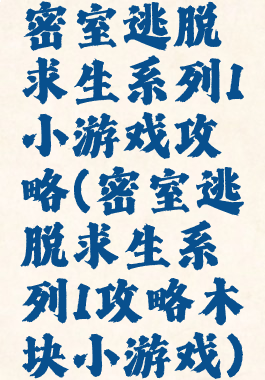 密室逃脱
求生系列1
小游戏攻
略(密室逃
脱求生系
列1攻略木
块小游戏)